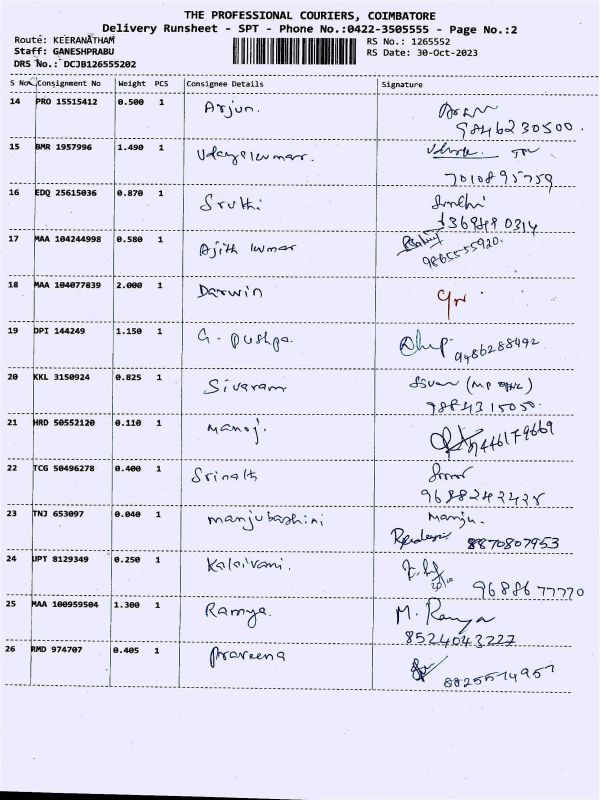 THE PROFESSIONAL COURIERS, COIMBATORE
Delivery Runsheet - SPT - Phone No.:0422-3505555 - Page No.:2
Route: KEERANATHAM
RS No.: 1265552
Staff: GANESHPRABU
RS Date: 30-Oct-2023
DRS No.: DCJB126555202
S No Consignment No Weight PCS Consignee Details Signature
14 PRO 15515412 0.500 1 Arjun.
9846230500.
15 BMR 1957996 1.490 1 Udayakumar.
7010895759
16 EDQ 25615036 0.870 1 Sruthi Sruthi
17 MAA 104244998 0.580 1 Ajith kumar
9865555920.
18 MAA 104077839 2.000 1 Darwin
19 DPI 144249 1.150 1 G. Pushpa
9486288492
20 KKL 3150924 0.825 1 Sivaram
9884315050.
21 HRD 50552120 0.110 1 Manoj.
9446179669
22 TCG 50496278 0.400 1 Srinath
9688242428
23 TNJ 653097 0.040 1 Manjubashini Manju.
8870807953
24 UPT 8129349 0.250 1 Kalaivani.
9688677770
25 MAA 100959504 1.300 1 Ramya. M. Ramya
8524043227
26 RMD 974707 0.405 1 Praveena
8825574957